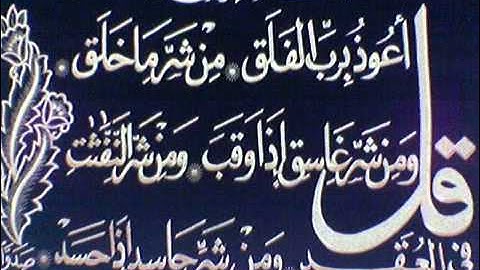 قل أعوذ برب الفلق * من شر ما خلق *
ومن شر غاسق إذا وقب * ومن شر النفّٰثٰت
في العقد * ومن شر حاسد إذا حسد *